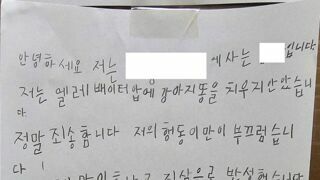 안녕하세요 저는 에 사는 입니다
저는 엘레베이터 앞에 강아지똥을 치우지 않았습니
다
정말 죄송합니다 저의 행동이 많이 부끄럽습니
다!
많이 하고 진심으로 반성했습니다